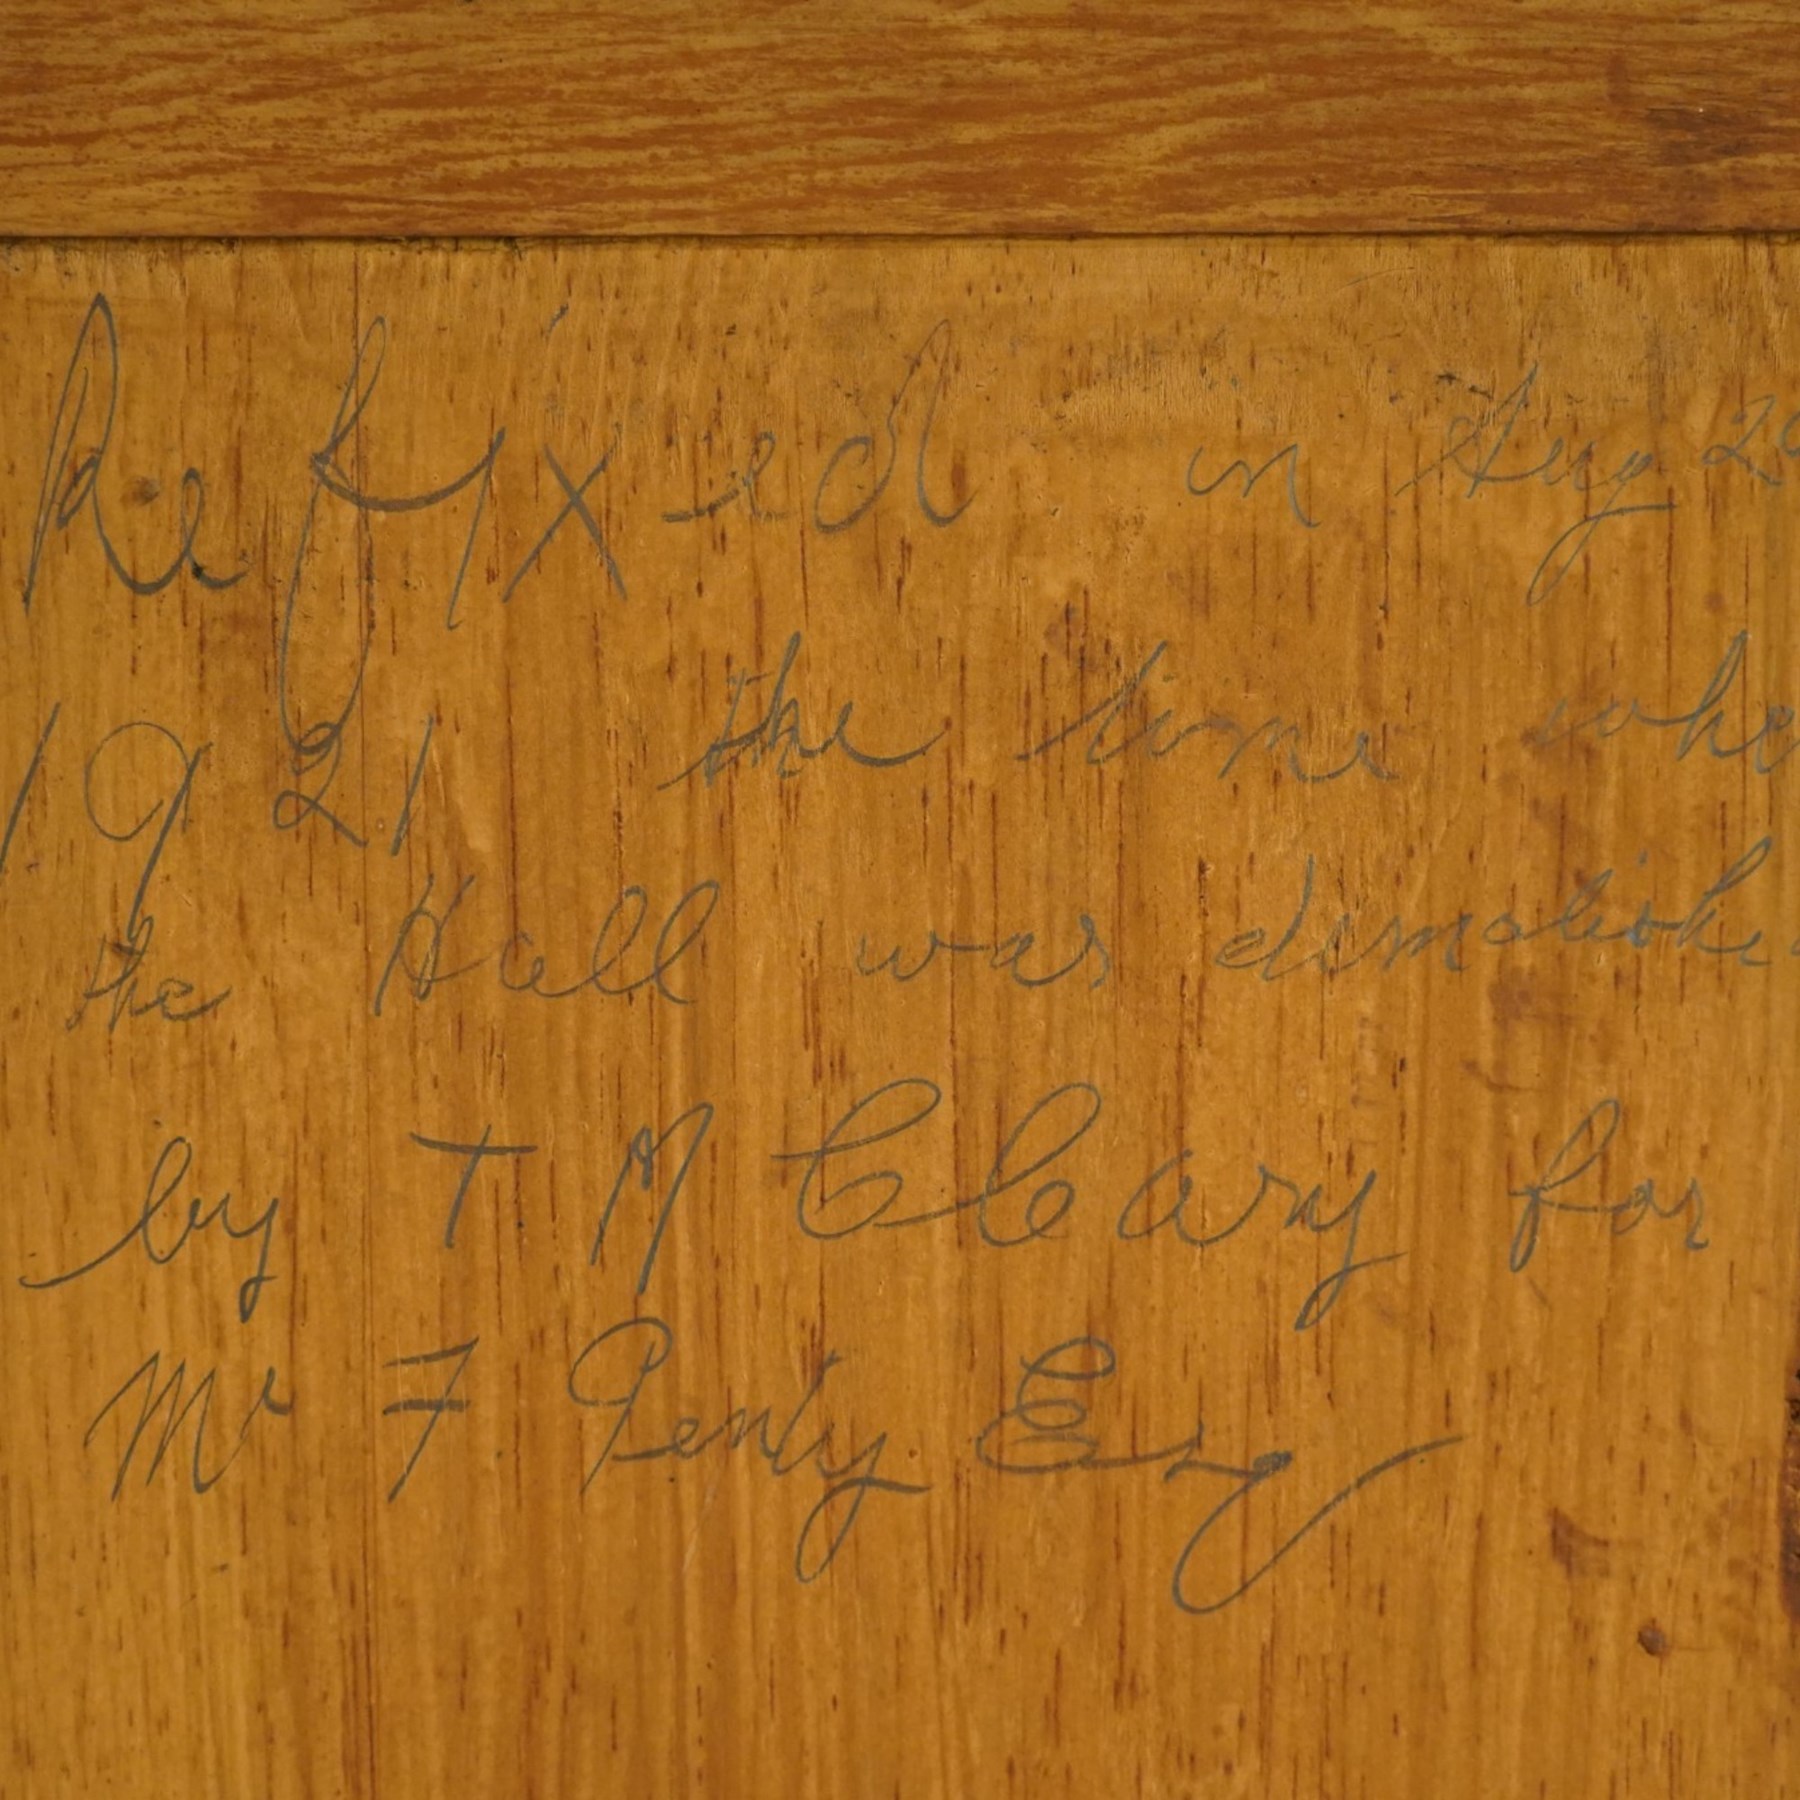 Refixed in Aug 20
1921 the time whe
the Hall was demolishe
by T M Cleary for
Mr F. Penty Esq